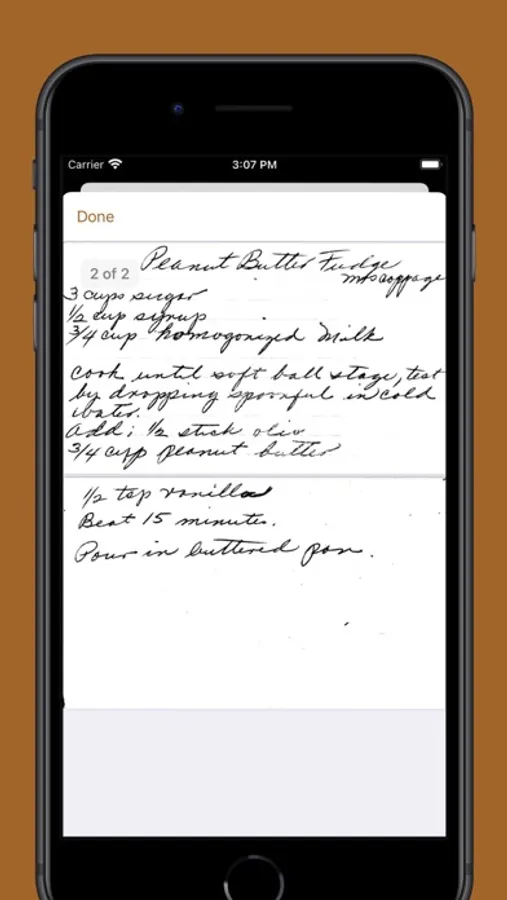 Carrier 3:07 PM
Done
2 of 2
Peanut Butter Fudge
3 cups sugar
1/2 cup syrup
3/4 cup homogonized milk
Cook until soft ball stage, test
by dropping spoonful in cold
water.
Add; 1/2 stick olio
3/4 cup peanut butter
1/2 tsp vanilla
Beat 15 minutes.
Pour in buttered pan.